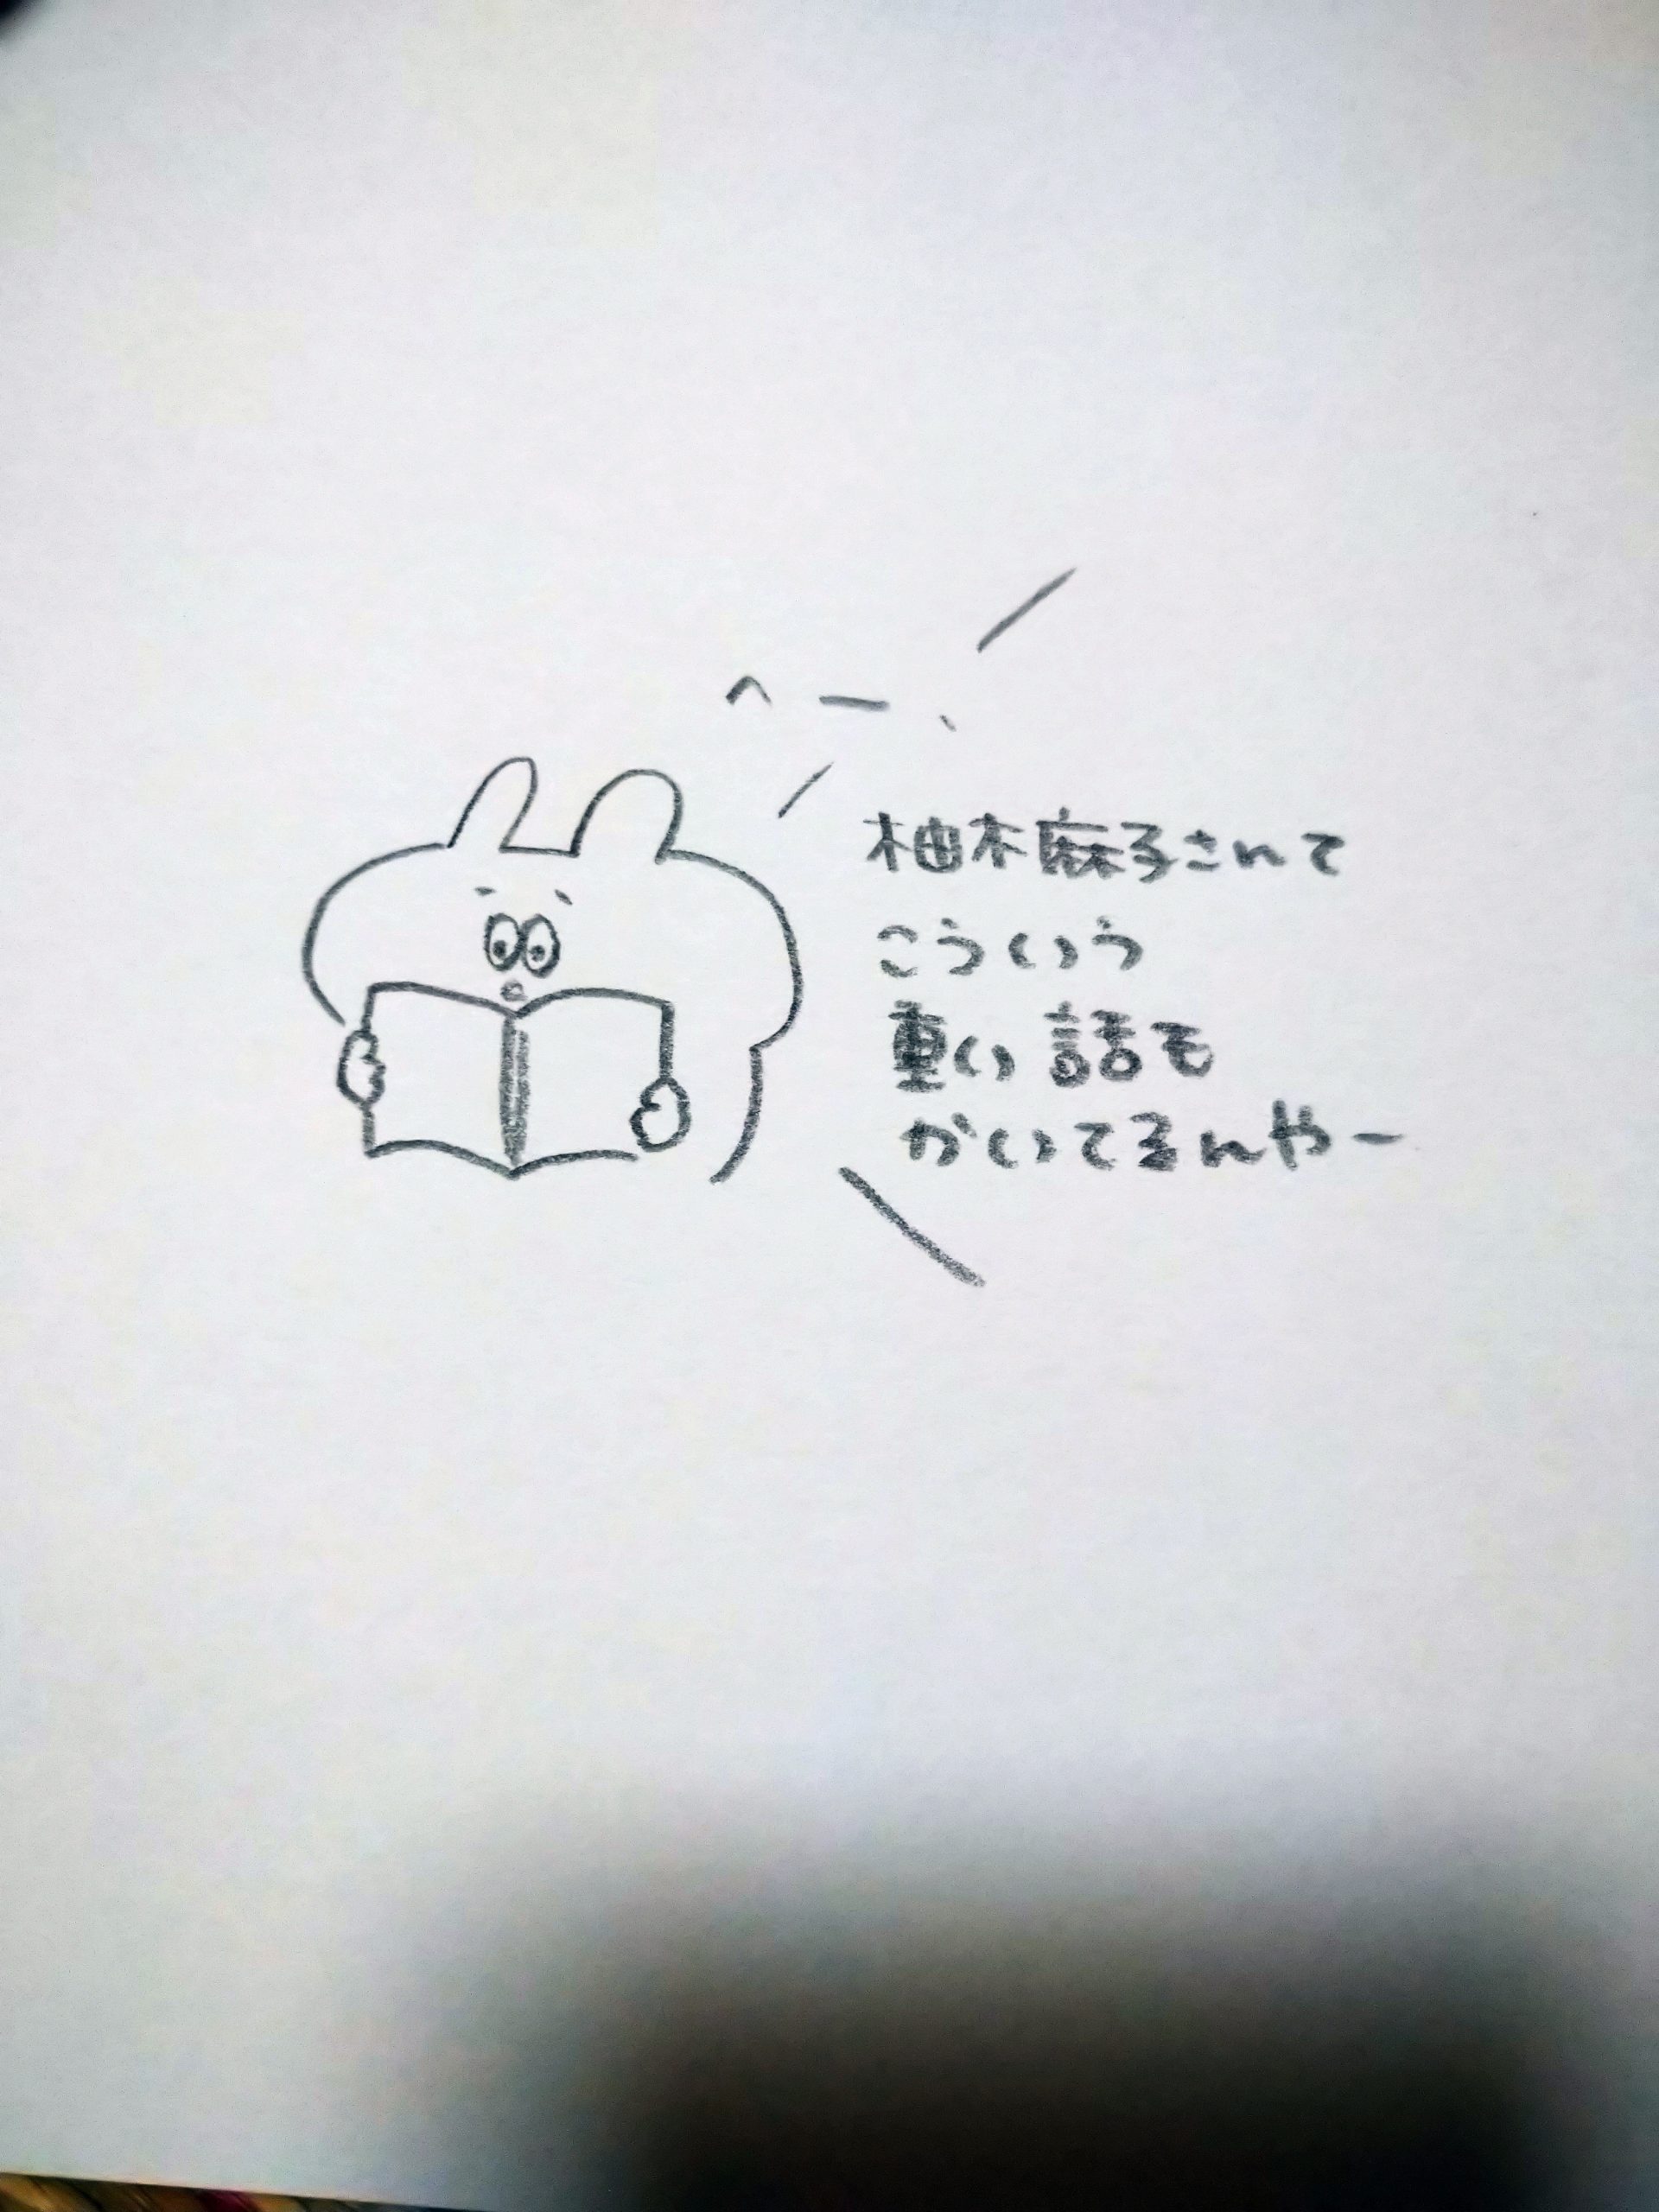 へー、
柚木麻子さんて
こういう
重い話も
かいてるんやー